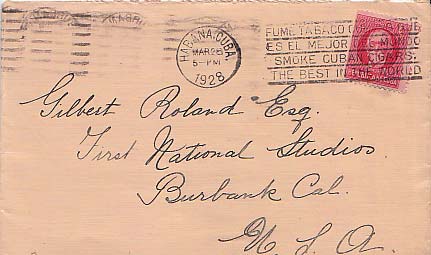 HABANA, CUBA.
MAR 26
5- PM
1928
FUME TABACO
ES EL MEJOR MUNDO
SMOKE CUBAN CIGARS.
THE BEST IN THE WORLD
Gilbert Roland Esq.
First National Studios
Burbank Cal.
U. S. A.